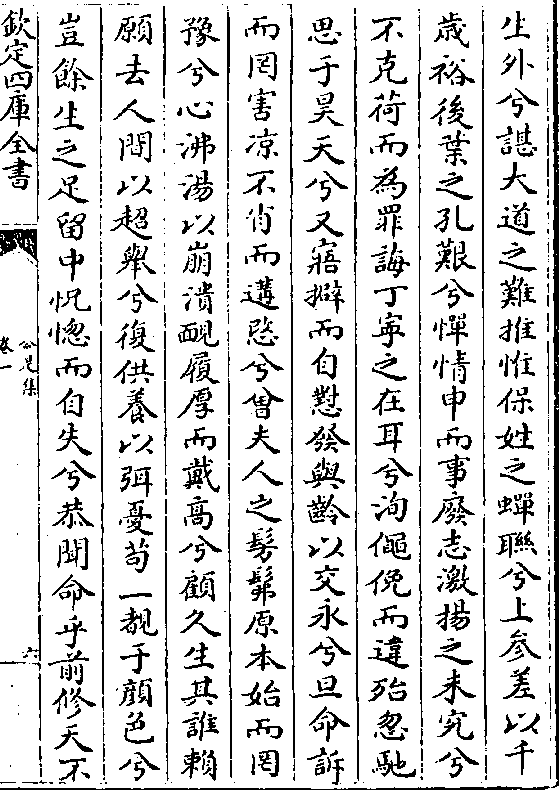 生外兮諶大道之難推惟保姓之蟬聯兮上參差以千
歲裕後葉之孔艱兮憚情申而事廢志激揚之未究兮
不克荷而為罪誨丁寧之在耳兮洵僶俛而違殆忽馳
思于昊天兮又寤擗而自懟發與齡以交永兮旦命訴
而罔害凉不肖而遘愍兮曾夫人之髣髴原本始而罔
豫兮心沸湯以崩潰覥履厚而戴高兮顧久生其誰賴
願去人間以超舉兮復供養以弭憂苟一覩于顔色兮
豈餘生之足留中怳惚而自失兮恭聞命乎前修天不
欽定四庫全書
公是集
卷一
六